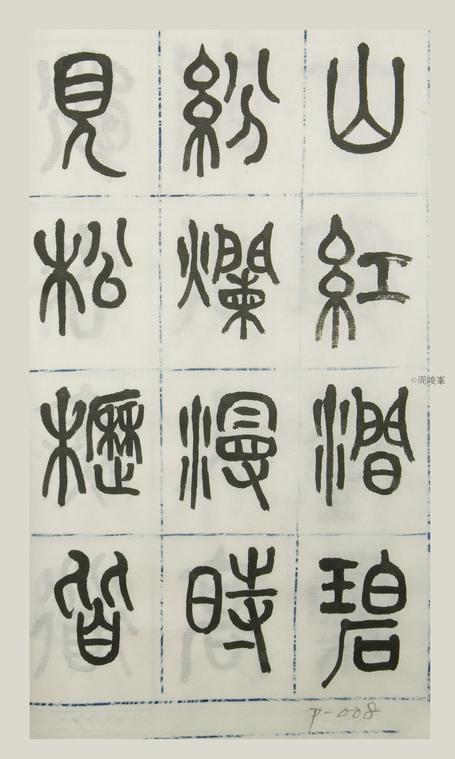 山紅澗碧
紛爛漫時
見松櫪皆
©周峻峯
P-008